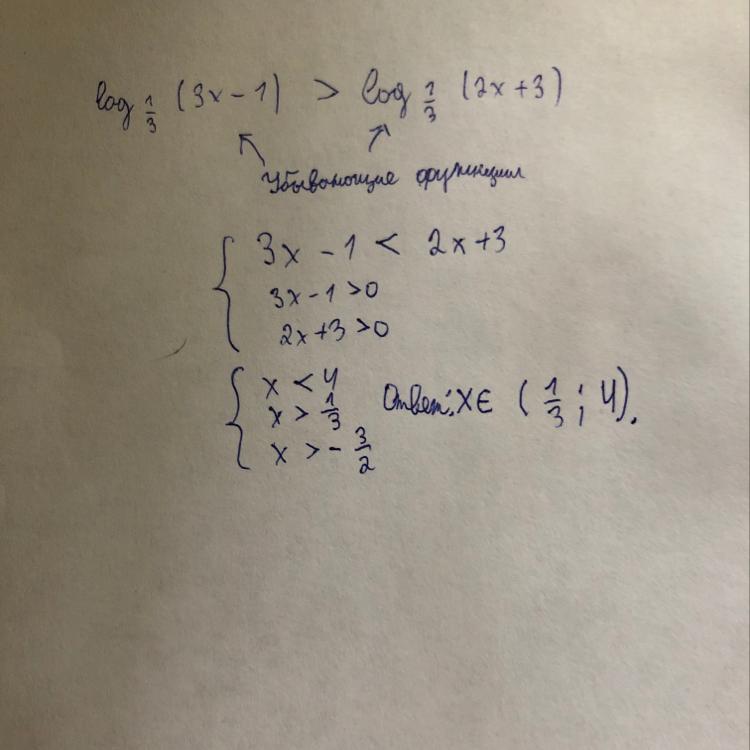 log 1/3 (3x-1) > log 1/3 (2x+3)
Убывающие функции
3x - 1 < 2x+3
3x-1>0
2x+3>0
x < 4
x > 1/3 Ответ: X∈ (1/3; 4).
x > - 3/2